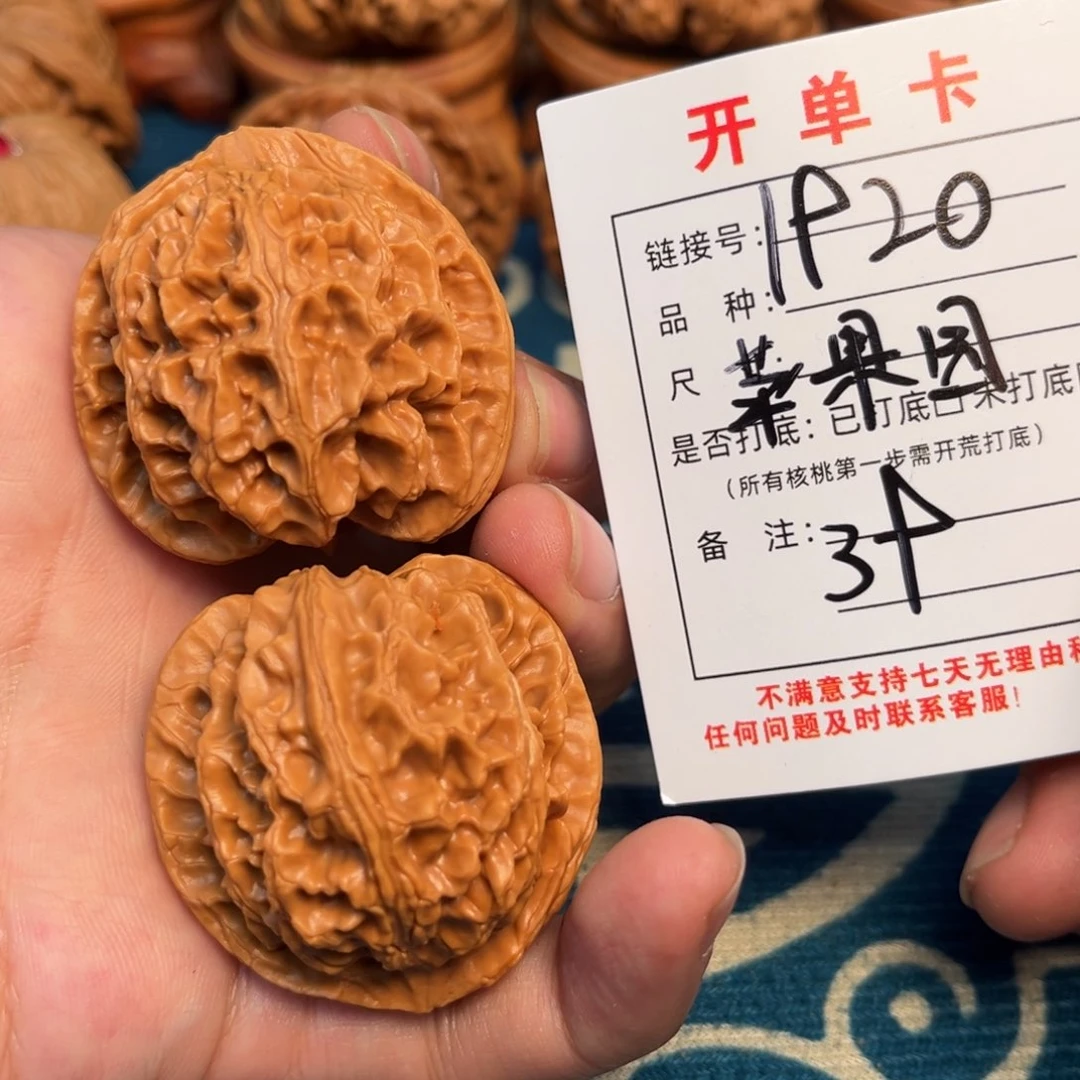 开单卡
链接号：1P20
品 种：
尺 菜果园
是否打底：已打底□未打底
（所有核桃第一步需开荒打底）
备 注：3个
不满意支持七天无理由
任何问题及时联系客服！